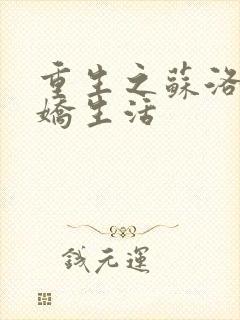 重生之蘇洛
嬌生活
錢元運